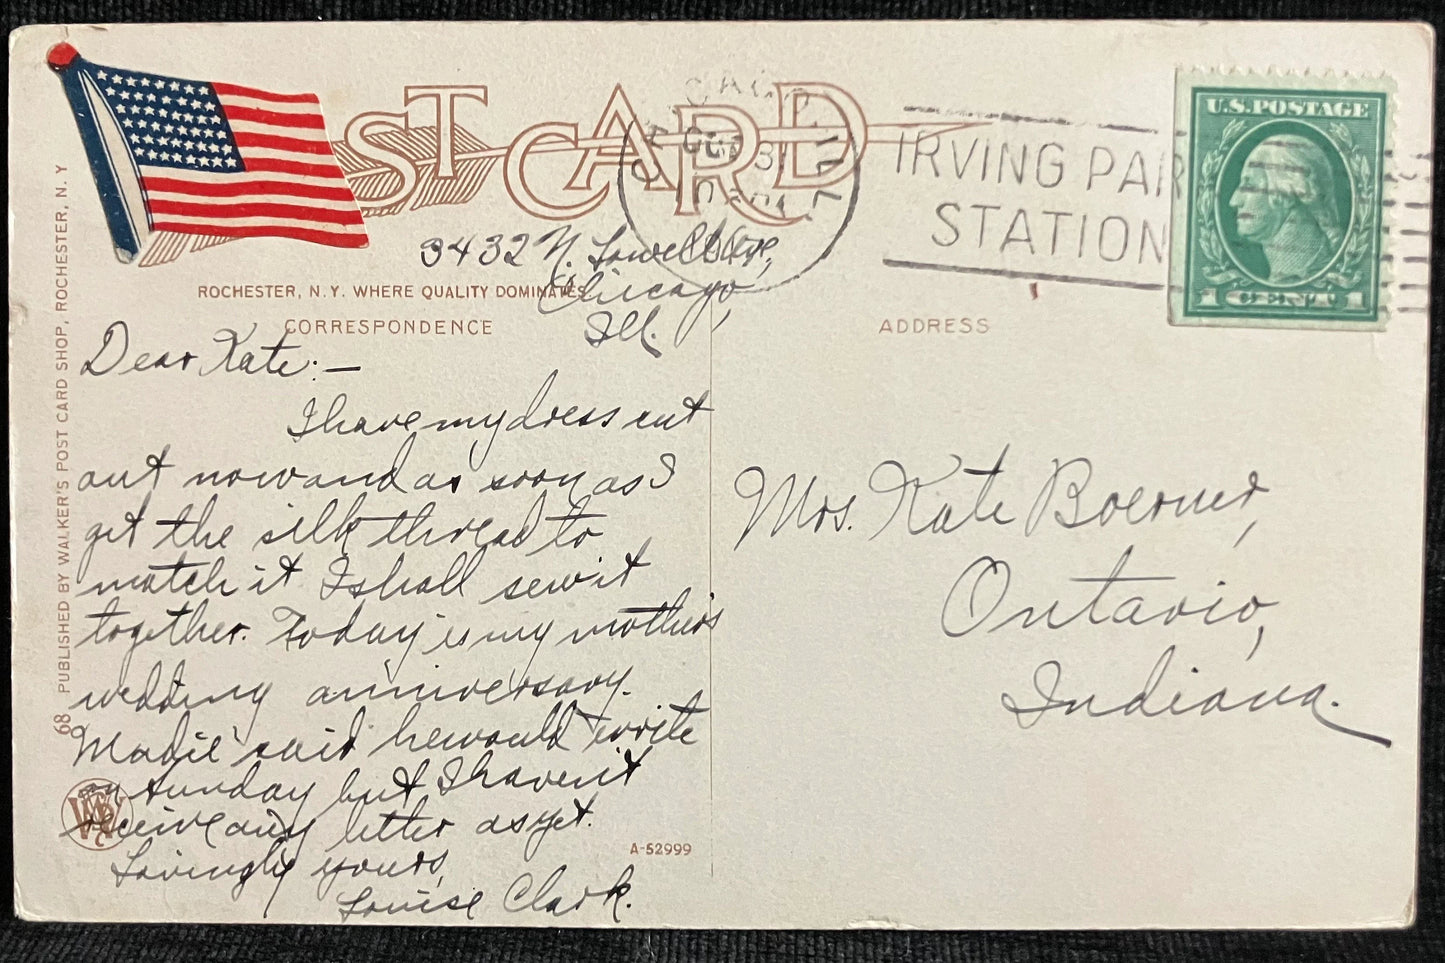 POST CARD
CHICAGO, ILL.
OCT 31
IRVING PAR
STATION
U.S. POSTAGE
1 CENT 1
3432 N. Lowell Ave,
Chicago,
Ill.
ROCHESTER, N.Y. WHERE QUALITY DOMINATES
CORRESPONDENCE
ADDRESS
Dear Kate:—
I have my dress cut
out now and as soon as I
get the silk thread to
match it I shall sew it
together. Today is my mother's
wedding anniversary.
said he would write
on Sunday but I haven't
receive any letter as yet.
Lovingly yours,
Louise Clark.
Mrs. Kate Boerner,
Ontario,
Indiana.
A-52999
68 PUBLISHED BY WALKER'S POST CARD SHOP, ROCHESTER, N.Y